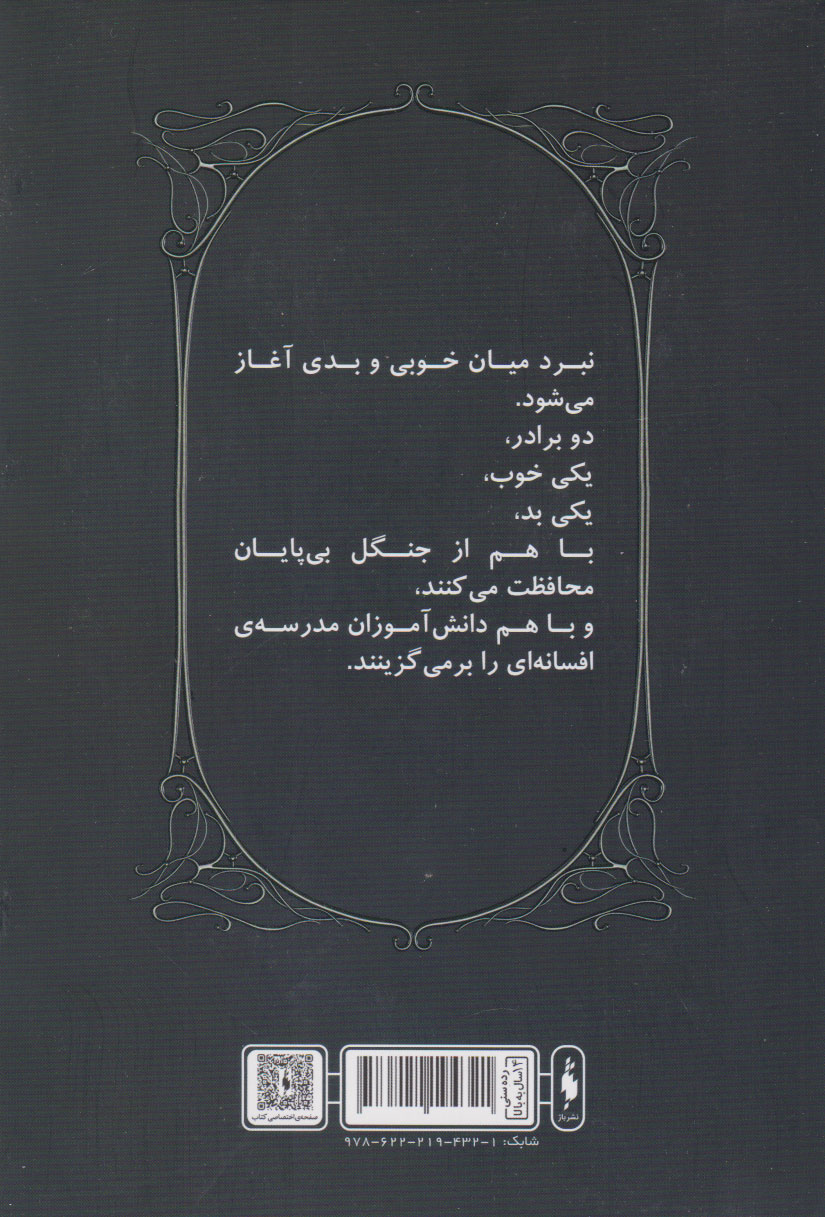 نبرد میان خوبی و بدی آغاز
می‌شود.
دو برادر،
یکی خوب،
یکی بد،
با هم از جنگل بی‌پایان
محافظت می‌کنند،
و با هم دانش‌آموزان مدرسه‌ی
افسانه‌ای را برمی‌گزینند.
نشر باژ
رده سنی
۱۴ سال به بالا
صفحه‌ی اختصاصی کتاب
شابک: ۹۷۸-۶۲۲-۲۱۹-۴۳۲-۱